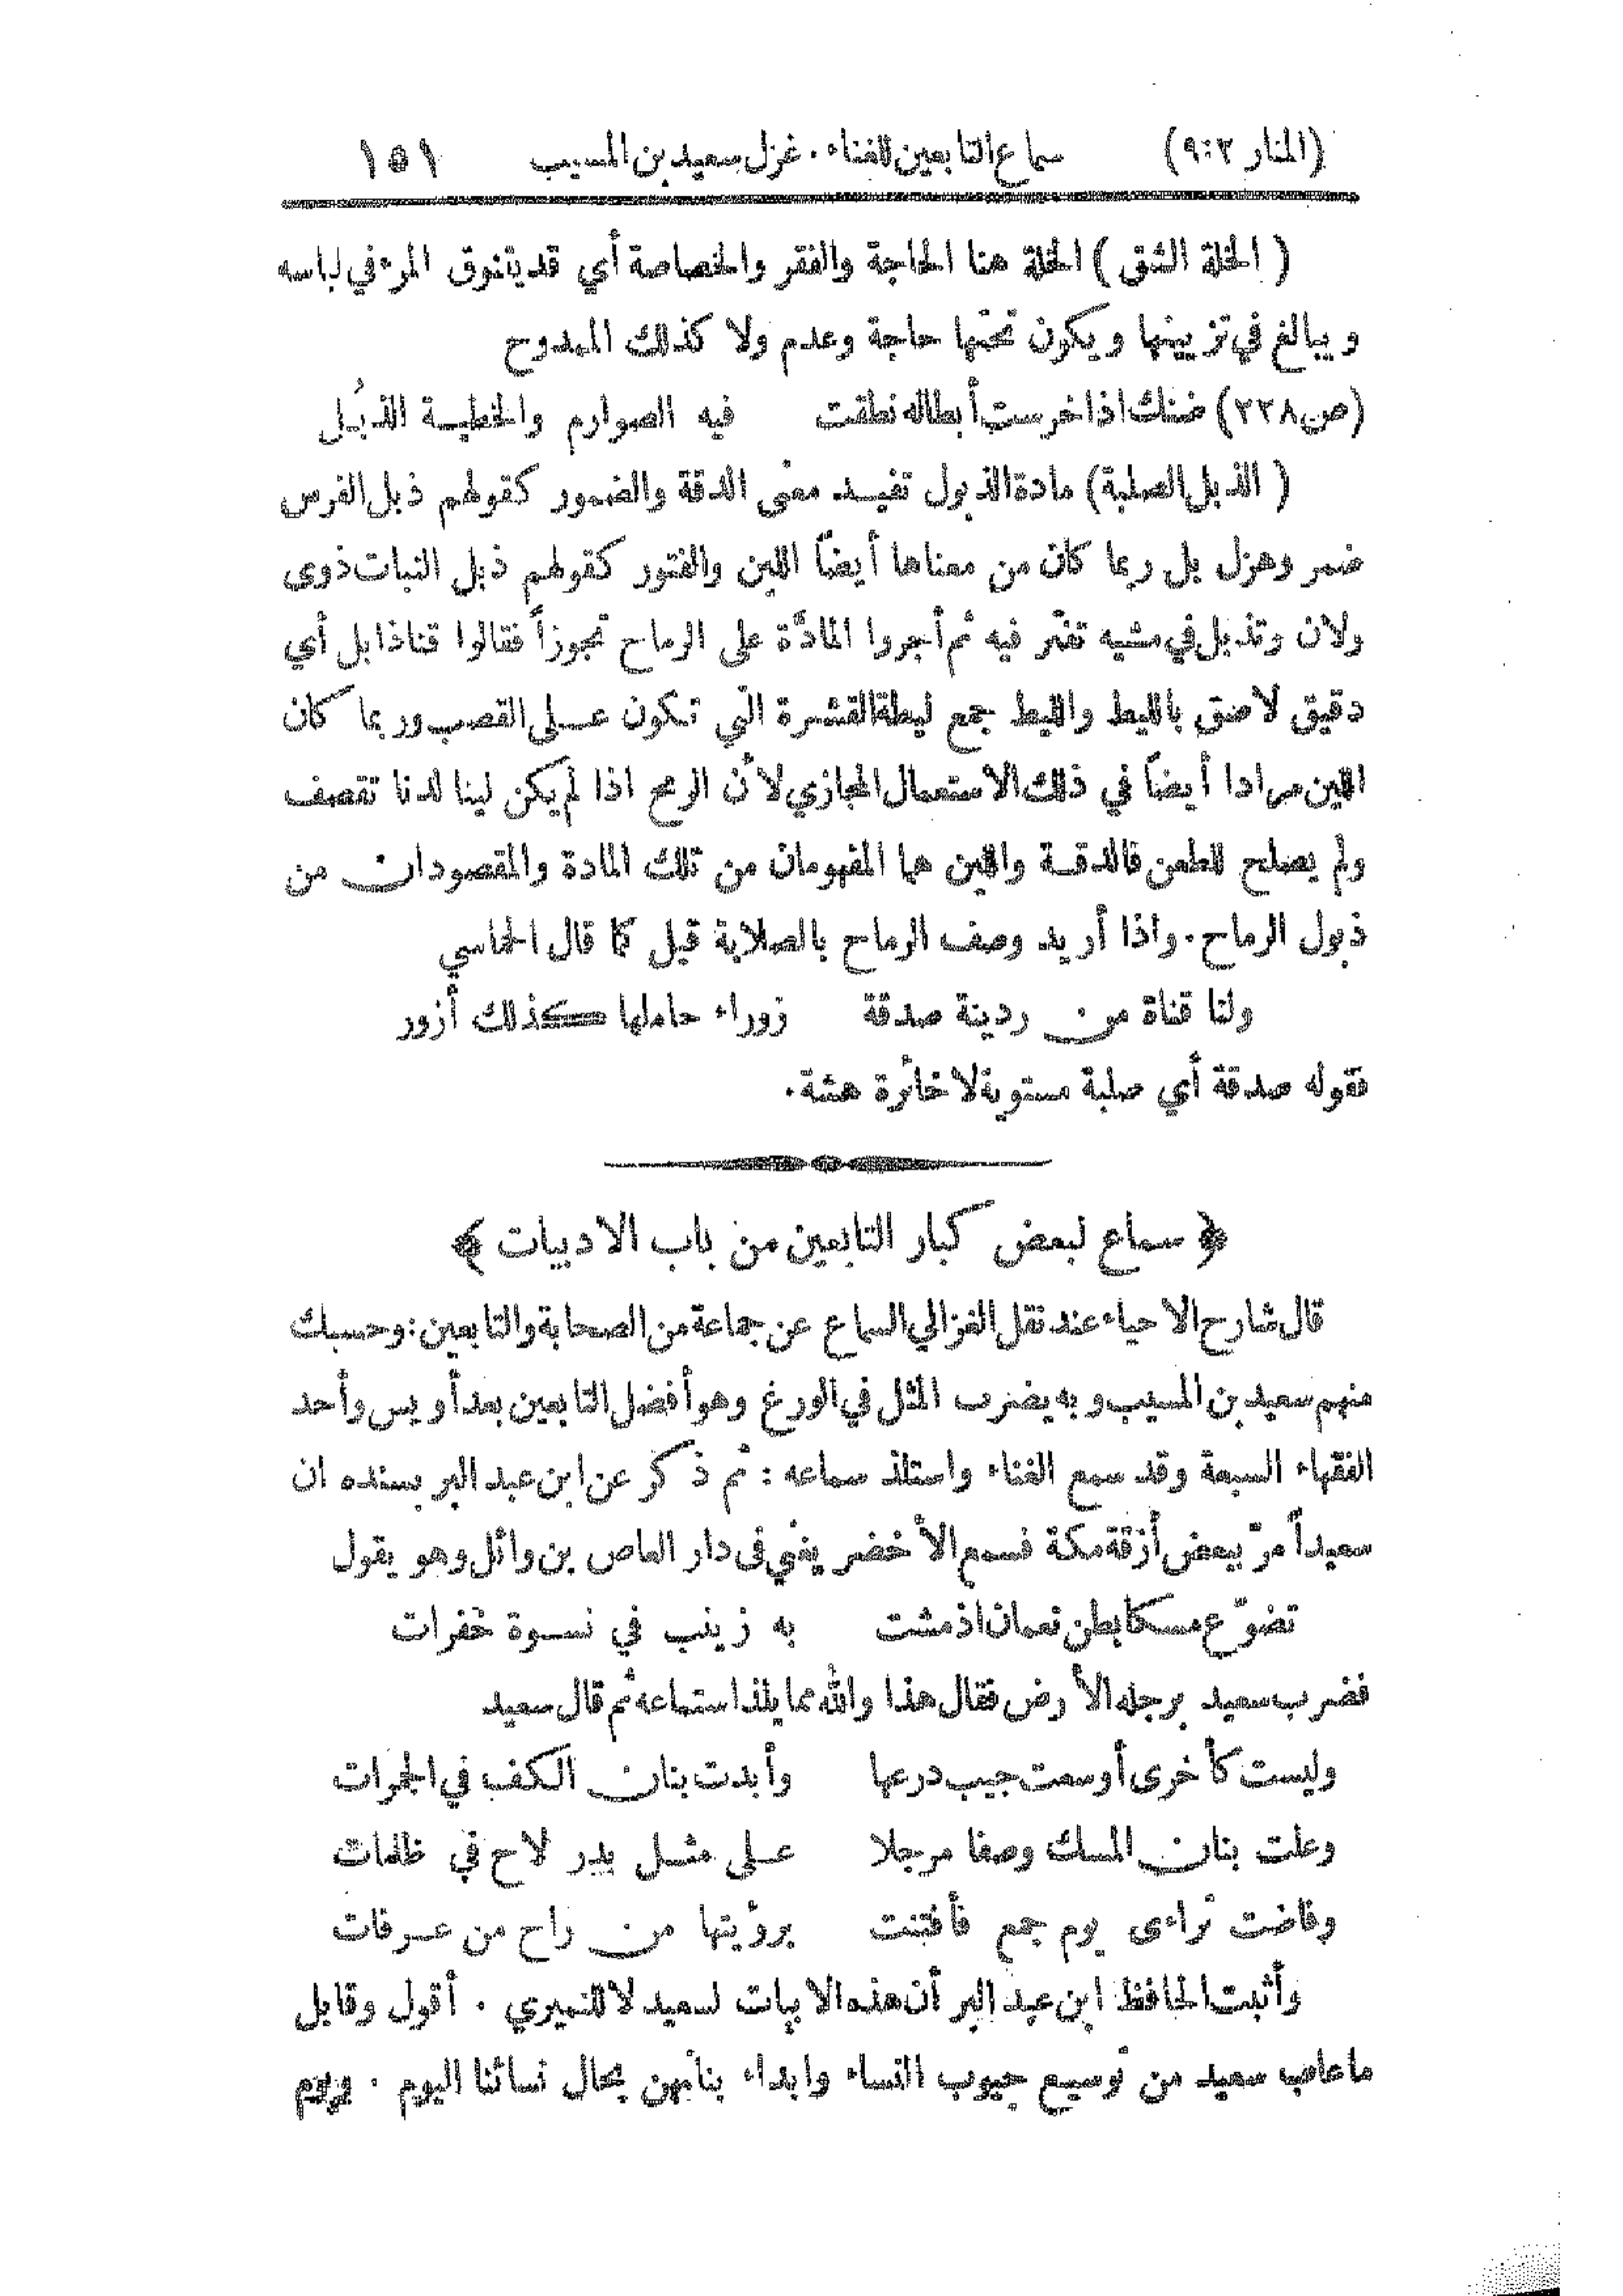 (المنار ٩:٢) سماع التابعين للغناء . غزل سعيد بن المسيب ١٥١
( الخلة الشق ) الخلة هنا الحاجة والفقر والخصاصة أي قد يتنوق المرء في لباسه
ويبالغ في تزيينها ويكون تحتها حاجة وعدم ولا كذلك الممدوح
(ص٢٢٨) ضنك اذا خرست أبطاله نطقت فيه الصوارم والخطية الذُبل
( الذبل الصلبة ) مادة الذبول تفيد معنى الدقة والضمور كقولهم ذبل الفرس
ضمر وهزل بل ربما كان من معناها أيضاً اللين والفتور كقولهم ذبل النبات ذوى
ولان وتذبل في مشيه تفتر فيه ثم أجروا المادّة على الرماح تجوزاً فقالوا قنا ذابل أي
دقيق لاصق بالليط والليط جمع ليطة القشرة التي تكون على القصب وربما كان
اللين مرادا أيضاً في ذلك الاستعمال المجازي لأن الرمح اذا لم يكن لينا لدنا تقصف
ولم يصلح للطعن فالدقة واللين هما المفهومان من تلك المادة والمقصودان من
ذبول الرماح . واذا أريد وصف الرماح بالصلابة قيل كما قال الحماسي
ولنا قناة من ردينة صدقة زوراء حاملها كذلك أزور
فقوله صدقة أي صلبة مستوية لا خائرة هشة .
﴿ سماع لبعض كبار التابعين من باب الادبيات ﴾
قال شارح الاحياء عند نقل الغزالي السماع عن جماعة من الصحابة والتابعين : وحسبك
منهم سعيد بن المسيب وبه يضرب المثل في الورع وهو أفضل التابعين بعد أويس وأحد
الفقهاء السبعة وقد سمع الغناء واستلذ سماعه : ثم ذكر عن ابن عبد البر بسنده ان
سعيداً مرّ ببعض أزقة مكة فسمع الأخضر يغني في دار العاص بن وائل وهو يقول
تضوّع مسكا بطن نعمان اذ مشت به زينب في نسوة خفرات
فضرب سعيد برجله الأرض فقال هذا والله مما يلذ استماعه ثم قال سعيد
وليست كأخرى أوسعت جيب درعها وأبدت بنان الكف في الجمرات
وعلت بنان المسك وصفا مرجلا على مثل بدر لاح في ظلمات
وفاضت تراءى يوم جمع فأفتنت برؤيتها من راح من عرفات
وأثبت الحافظ ابن عبد البر أن هذه الابيات لسعيد لا للنميري . أقول وقابل
ما عاب سعيد من توسيع جيوب النساء وابداء بنانهن بحال نسائنا اليوم .